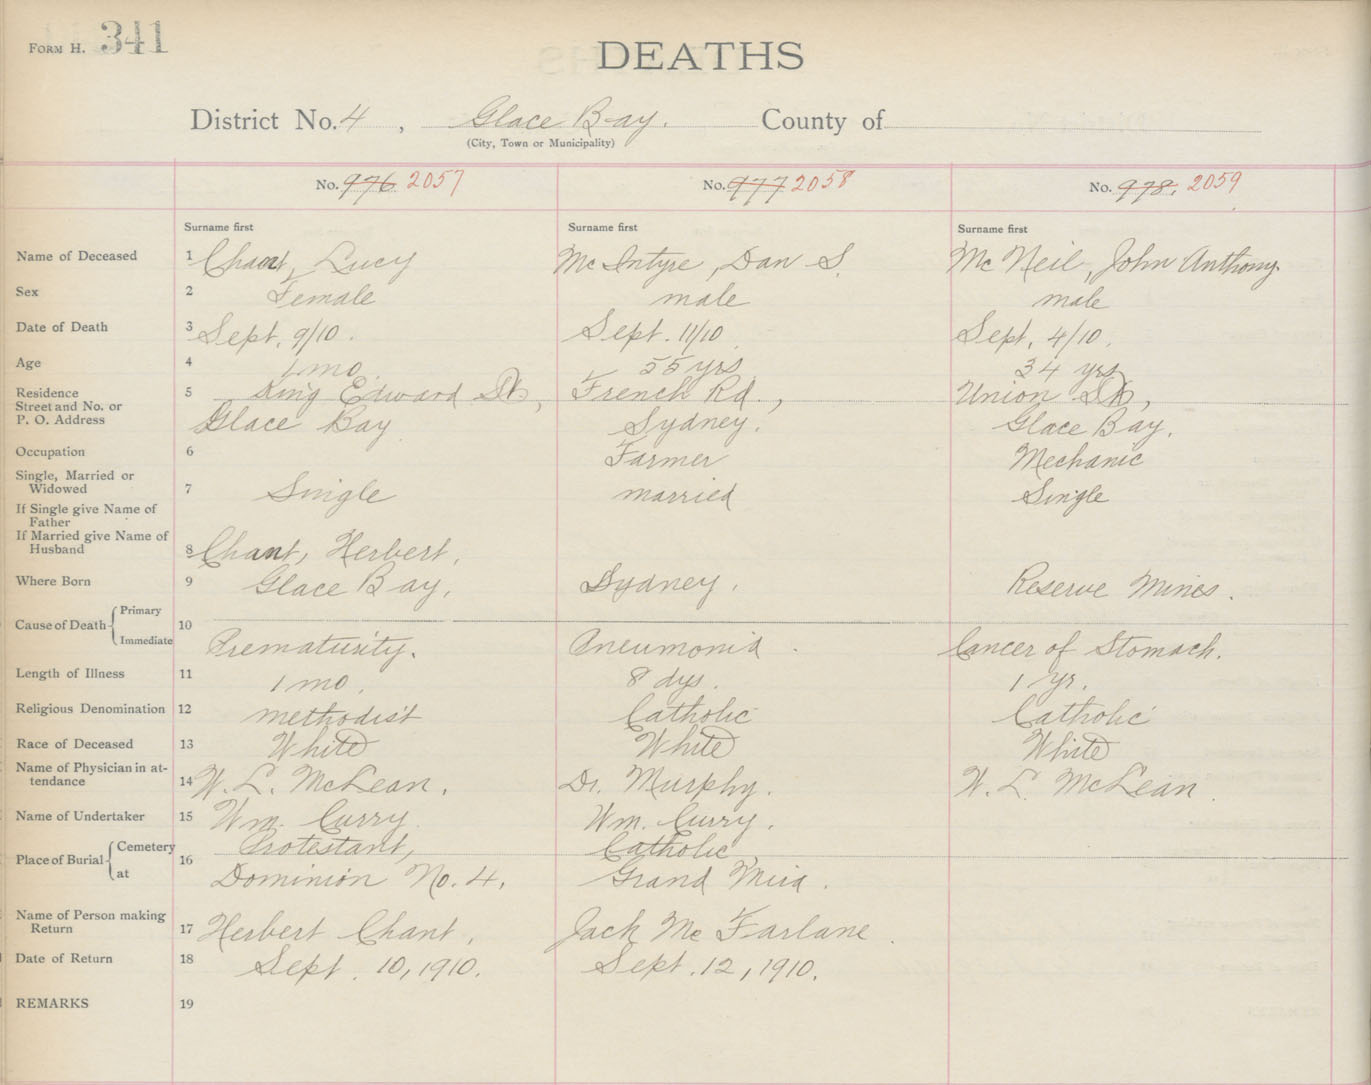 FORM H. 341
DEATHS
District No. 4, Glace Bay. County of
(City, Town or Municipality)
No. 976 2057 No. 977 2058 No. 978. 2059
Surname first Surname first Surname first
Name of Deceased 1 Chant, Lucy Mc Intyre, Dan S. Mc Neil, John Anthony.
Sex 2 Female male male
Date of Death 3 Sept. 9/10. Sept. 11/10 Sept. 4/10.
Age 4 1 mo. 55 yrs 34 yrs
Residence 5 King Edward St, French Rd., Union St,
Street and No. or
P. O. Address Glace Bay Sydney. Glace Bay.
Occupation 6 Farmer Mechanic
Single, Married or
Widowed 7 Single married Single
If Single give Name of
Father
If Married give Name of
Husband 8 Chant, Herbert.
Where Born 9 Glace Bay. Sydney. Reserve Mines.
Cause of Death Primary
10
Immediate Prematurity. Pneumonia. Cancer of Stomach.
Length of Illness 11 1 mo. 8 dys. 1 yr.
Religious Denomination 12 methodist Catholic Catholic
Race of Deceased 13 White White White
Name of Physician in at-
tendance 14 W. L. McLean. Dr. Murphy. W. L. McLean.
Name of Undertaker 15 Wm. Curry. Wm. Curry.
Place of Burial Cemetery 16 Protestant, Catholic,
at Dominion No. 4. Grand Mira.
Name of Person making
Return 17 Herbert Chant. Jack Mc Farlane.
Date of Return 18 Sept. 10, 1910. Sept. 12, 1910.
REMARKS 19